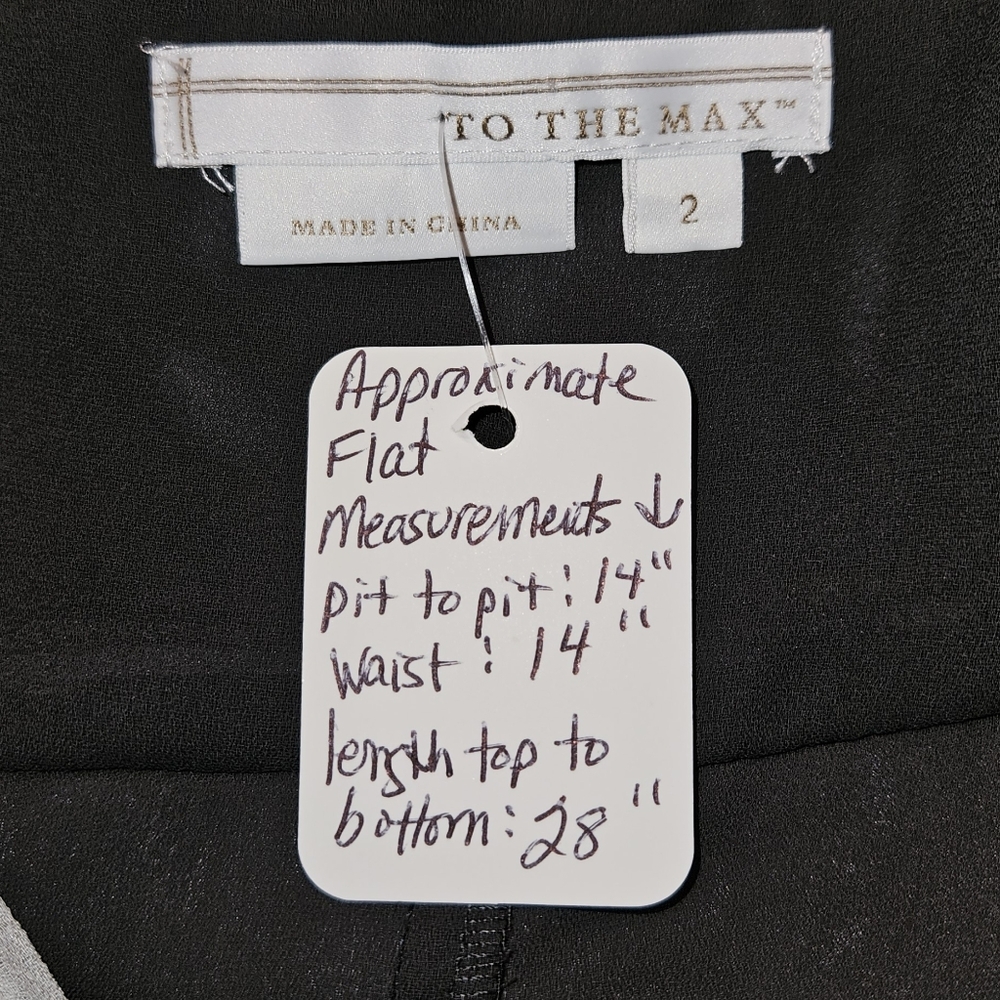 TO THE MAX™
MADE IN CHINA
2
Approximate
Flat
Measurements ↓
pit to pit: 14"
Waist: 14"
length top to
bottom: 28"